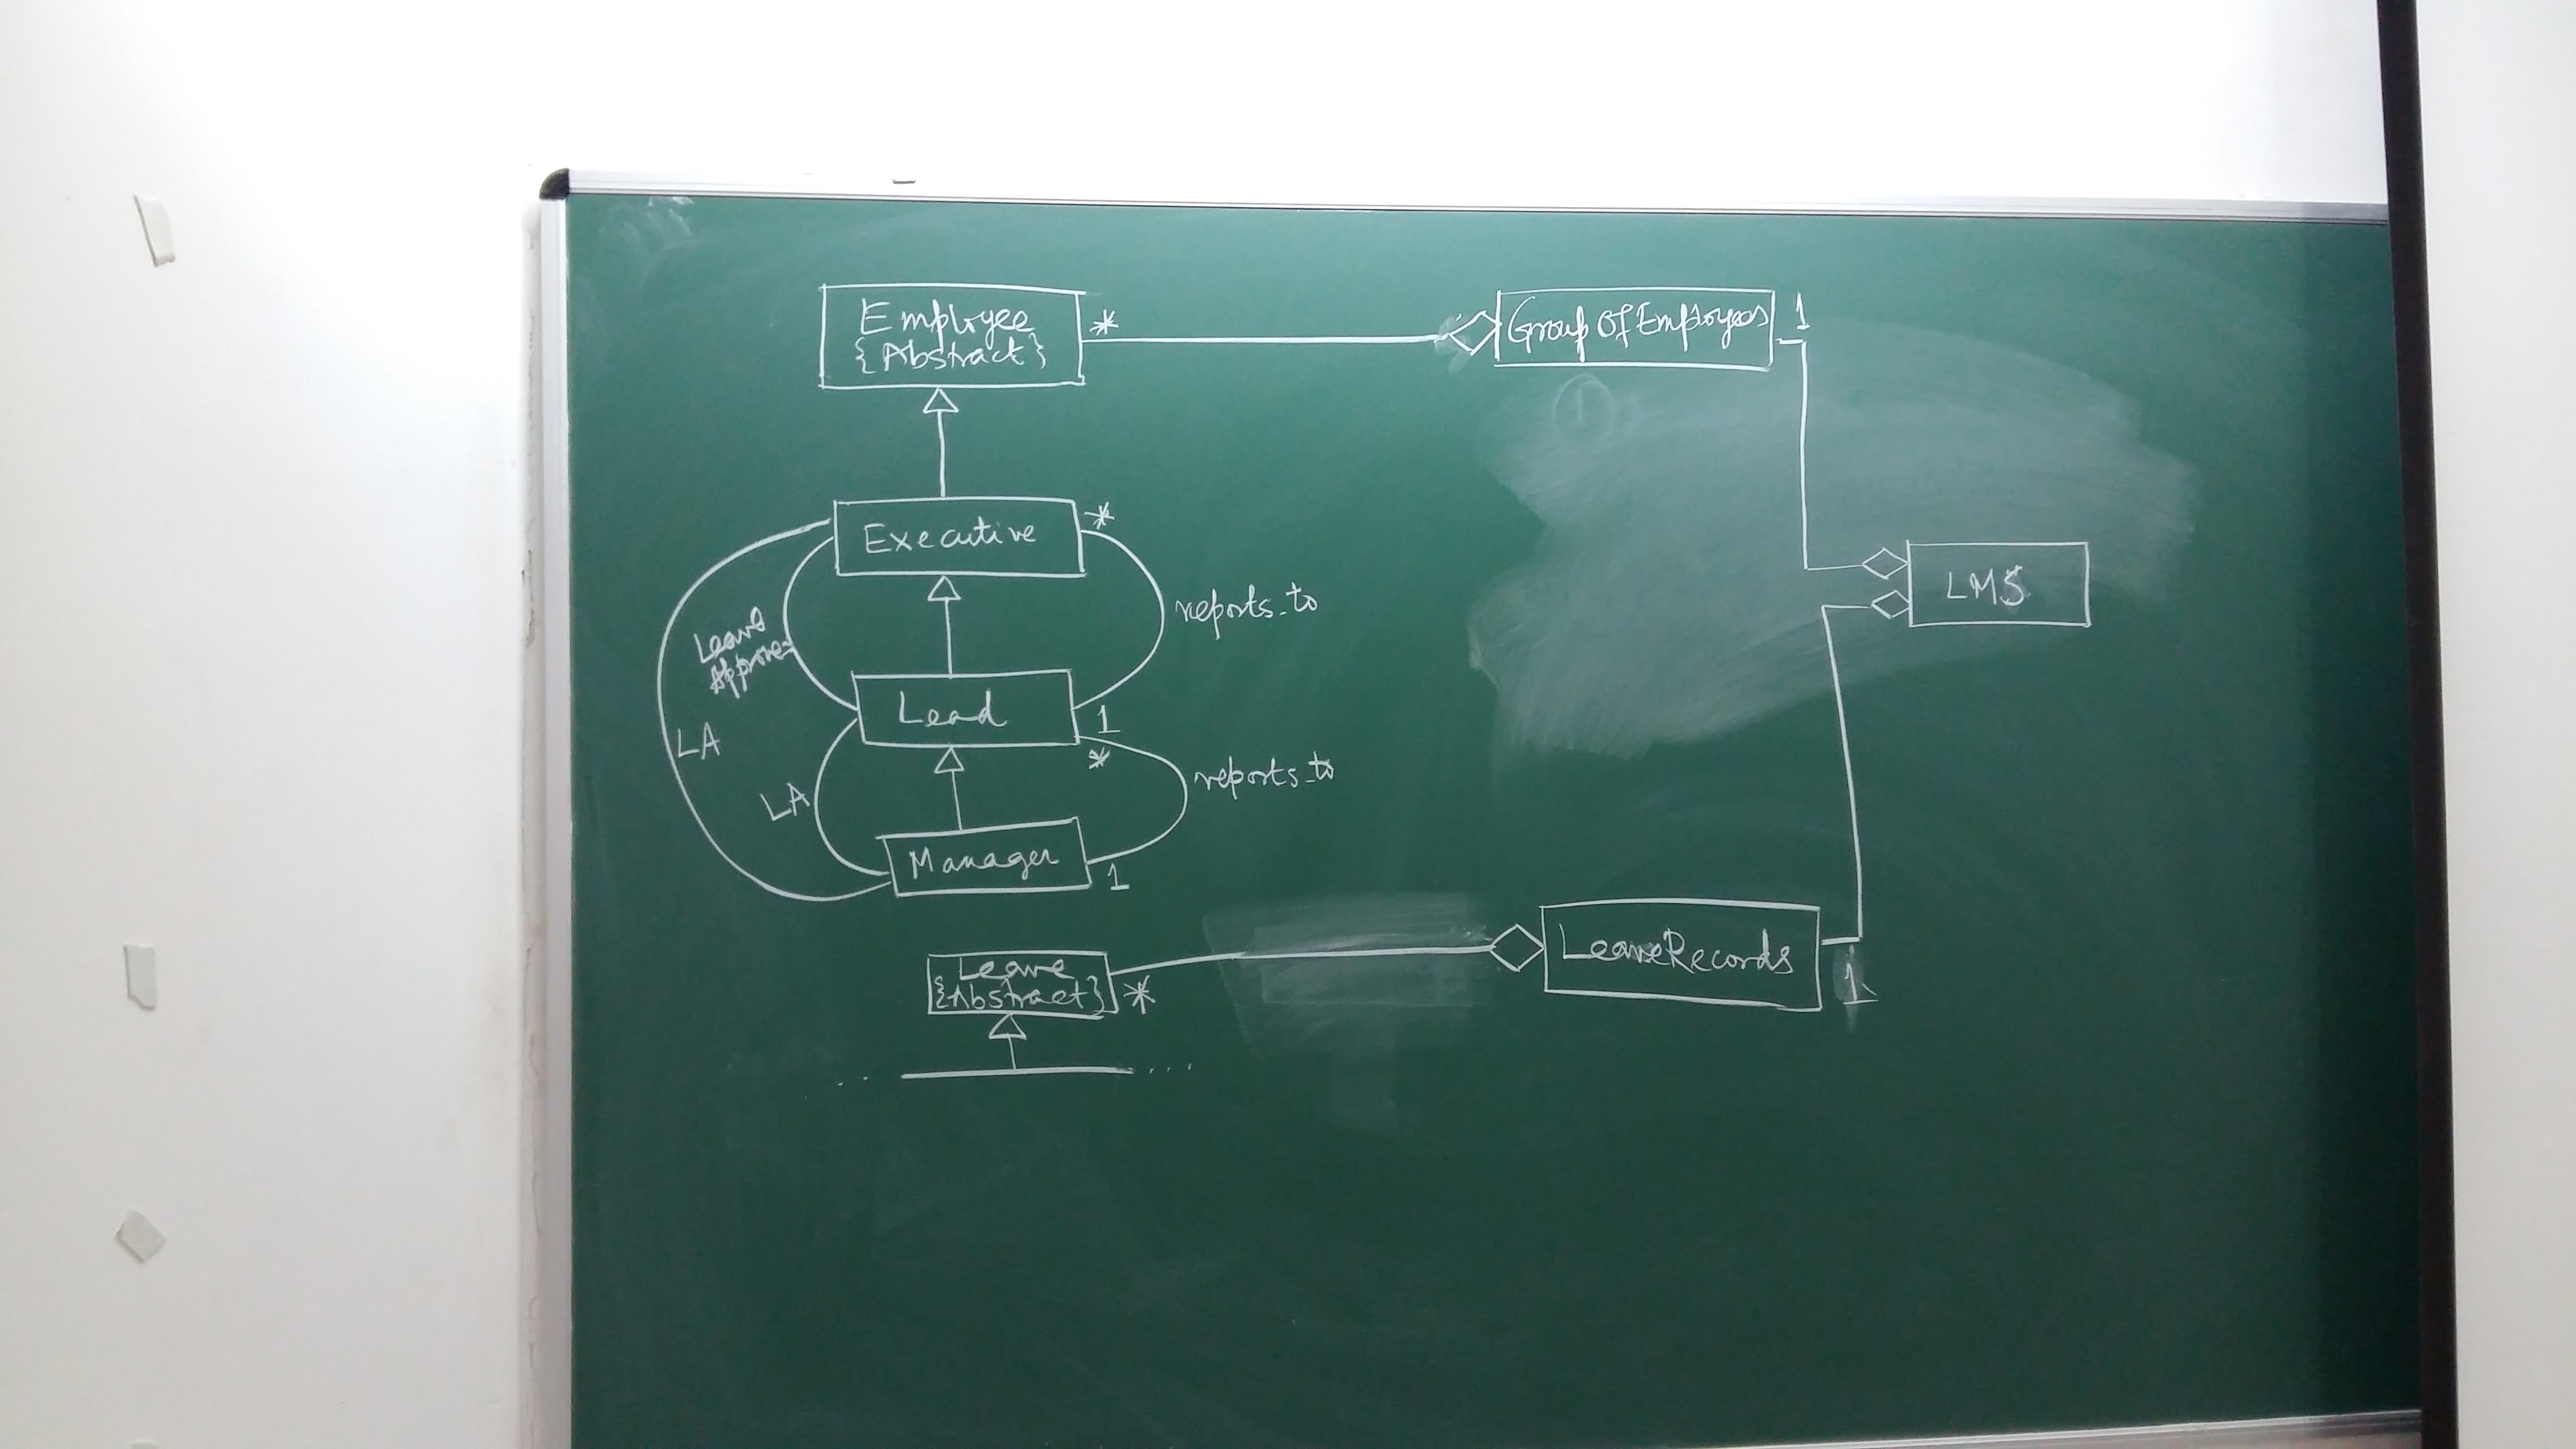 Employee
{Abstract}
*
GroupOfEmployees
1
Executive
*
reports_to
LMS
Leave
Approves
Lead
1
*
LA
reports_to
LA
Manager
1
Leave
{Abstract}
*
LeaveRecords
1
... ...